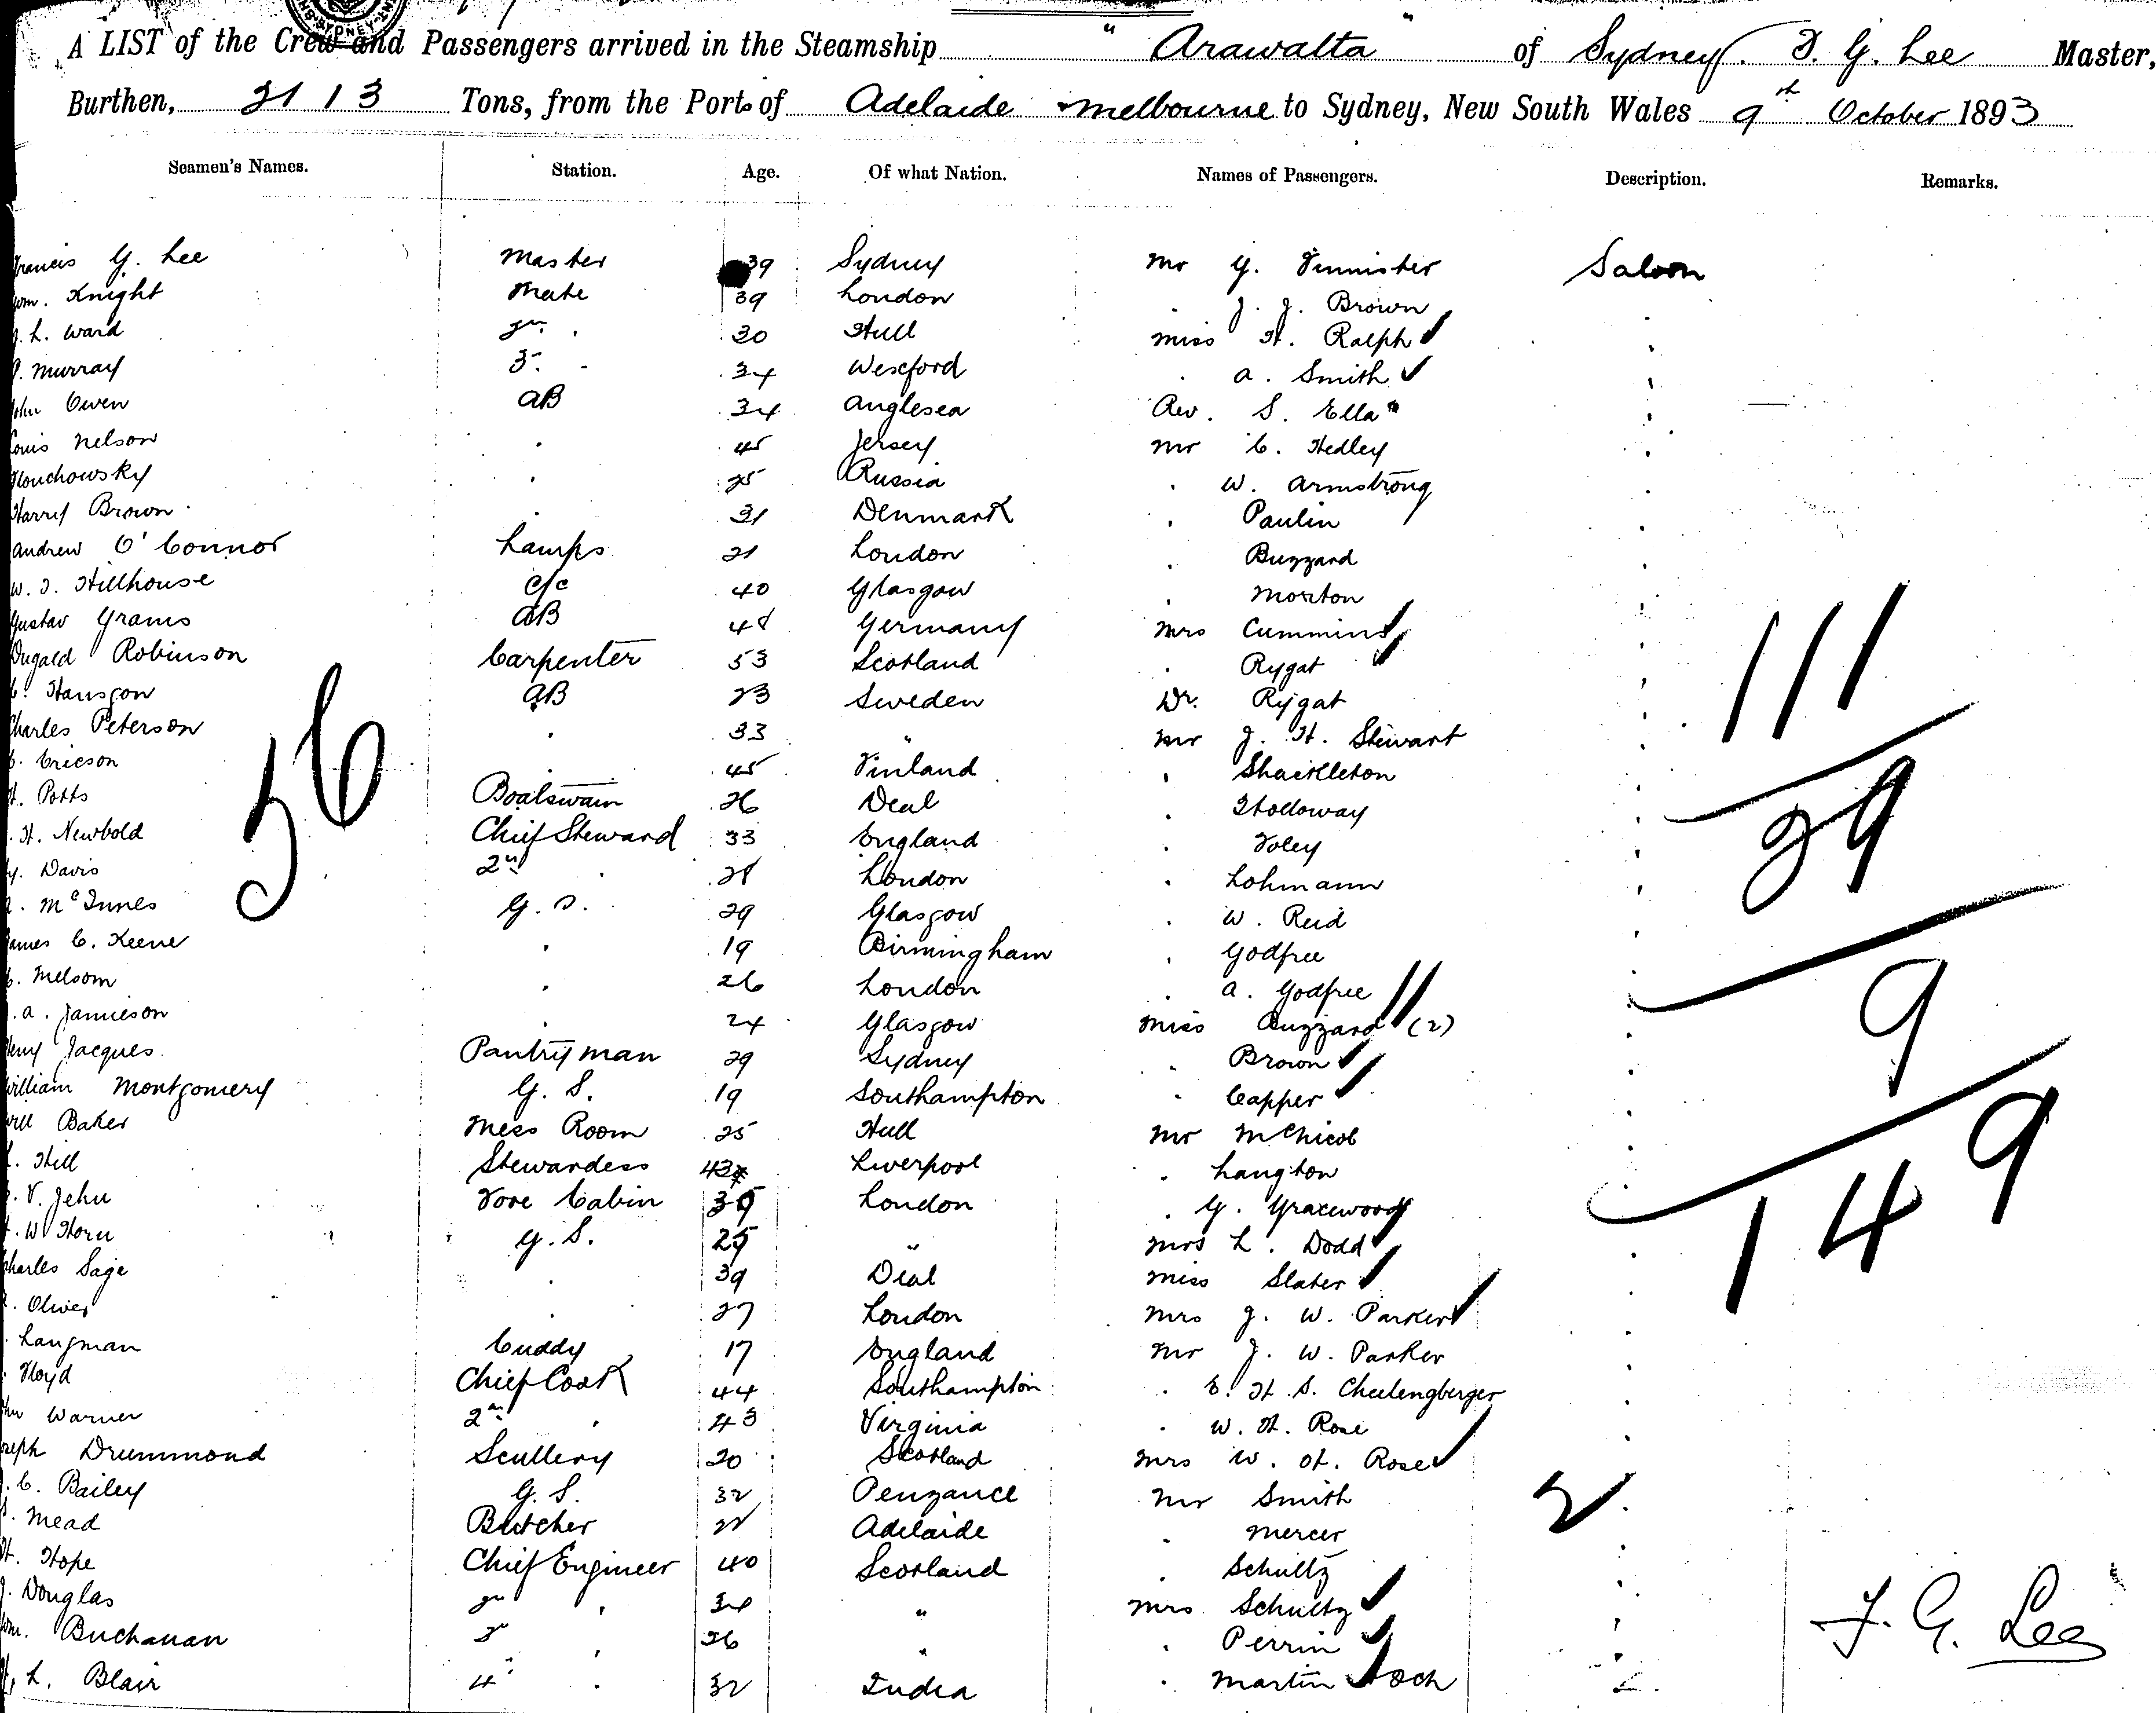 A LIST of the Crew and Passengers arrived in the Steamship "Arawatta" of Sydney. F. G. Lee Master,
Burthen, 2113 Tons, from the Port of Adelaide Melbourne to Sydney, New South Wales 9th October 1893
Seamen's Names. Station. Age. Of what Nation. Names of Passengers. Description. Remarks.
Francis G. Lee Master 39 Sydney Mr G. Saloon
Wm. Knight Mate 39 London . J. J. Brown
J. L. Ward 2nd . 30 Hull Miss H. Ralph
P. Murray 3. - 34 Wexford . A. Smith
John Owen AB 34 Anglesea Rev. S. Ella
Louis Nelson . 45 Jersey Mr C. Hedley
. 25 Russia . W. Armstrong
Harry Brown . 31 Denmark . Paulin
Andrew O'Connor Lamps 21 London . Buzzard
W. J. Hillhouse c/c 40 Glasgow . Morton
Gustav Grams AB 48 Germany Mrs Cummins
Dugald Robinson Carpenter 53 Scotland . Rygat
C. AB 23 Sweden Dr. Rygat
Charles Peterson . 33 " Mr J. H. Stewart
C. Ericson . 45 Finland . Shackleton
H. Potts Boatswain 26 Deal . Holloway
H. Newbold Chief Steward 33 England . Foley
G. Davis 2nd . 28 London . Lohmann
McInnes G. S. 29 Glasgow . W. Reid
James C. Keene . 19 Birmingham . Godfree
C. Melsom . 26 London . A. Godfree
A. Jamieson . 24 Glasgow Miss Buzzard (2)
Henry Jacques Pantryman 29 Sydney . Brown
William Montgomery G. S. 19 Southampton . Capper
Will Baker Mess Room 25 Hull Mr McNicol
Hill Stewardess 43 Liverpool . Langton
V. Jehu Fore Cabin 39 London . G.
W Horn G. S. 25 " Mrs L. Dodd
Charles Sage . 39 Deal Miss Slater
Oliver . 27 London Mrs J. W. Parker
Langman Cuddy 17 England Mr J. W. Parker
Floyd Chief Cook 44 Southampton . E. H. S.
John Warner 2nd . 43 Virginia . W. H. Rose
Joseph Drummond Scullery 20 Scotland Mrs W. H. Rose
C. Bailey G. S. 32 Penzance Mr Smith
Mead Butcher 22 Adelaide . Mercer
H. Hope Chief Engineer 40 Scotland . Schultz
J. Douglas 2nd . 34 " Mrs Schultz
Wm. Buchanan 3rd . 26 " . Perrin
L. Blair 4 . 32 India . Martin
56
111
29
9
149
2
F. G. Lee